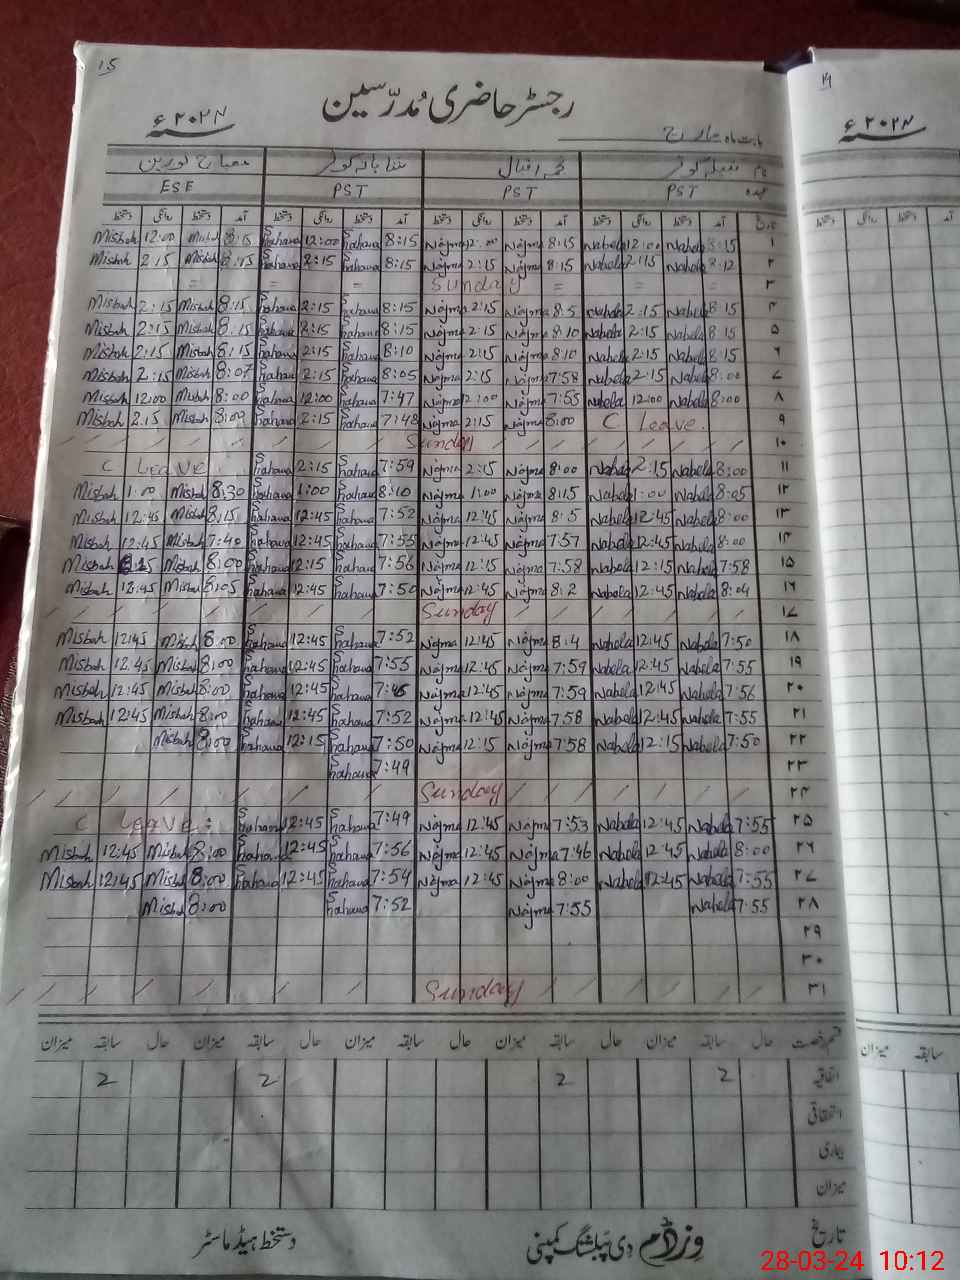 15
رجسٹر حاضری مُدرّسین
سنہ ۲۰۲۴ء
بابت ماہ مارچ
نام نبیلہ کوثر نجمہ اقبال شبانہ کوثر مصباح نورین
عہدہ PST PST PST ESE
تاریخ آمد دستخط روانگی دستخط آمد دستخط روانگی دستخط آمد دستخط روانگی دستخط آمد دستخط روانگی دستخط
Misbah 12:00 Misbah 8:15 Shahana 12:00 Shahana 8:15 Najma 12:00 Najma 8:15 Nabela 12:00 Nabela 8:15 ۱
Misbah 2:15 Misbah 8:15 Shahana 2:15 Shahana 8:15 Najma 2:15 Najma 8:15 Nabela 2:15 Nabela 8:12 ۲
= = = Sunday = = = ۳
Misbah 2:15 Misbah 8:15 Shahana 2:15 Shahana 8:15 Najma 2:15 Najma 8:5 Nabela 2:15 Nabela 8:15 ۴
Misbah 2:15 Misbah 8:15 Shahana 2:15 Shahana 8:15 Najma 2:15 Najma 8:10 Nabela 2:15 Nabela 8:15 ۵
Misbah 2:15 Misbah 8:15 Shahana 2:15 Shahana 8:10 Najma 2:15 Najma 8:10 Nabela 2:15 Nabela 8:15 ۶
Misbah 2:15 Misbah 8:07 Shahana 2:15 Shahana 8:05 Najma 2:15 Najma 7:58 Nabela 2:15 Nabela 8:00 ۷
Misbah 12:00 Misbah 8:00 Shahana 12:00 Shahana 7:47 Najma 12:00 Najma 7:55 Nabela 12:00 Nabela 8:00 ۸
Misbah 2:15 Misbah 8:00 Shahana 2:15 Shahana 7:48 Najma 2:15 Najma 8:00 C Leave. ۹
Sunday ۱۰
C Leave. Shahana 2:15 Shahana 7:59 Najma 2:15 Najma 8:00 Nabela 2:15 Nabela 8:00 ۱۱
Misbah 1:00 Misbah 8:30 Shahana 1:00 Shahana 8:10 Najma 1:00 Najma 8:15 Nabela 1:00 Nabela 8:05 ۱۲
Misbah 12:45 Misbah 8:15 Shahana 12:45 Shahana 7:52 Najma 12:45 Najma 8:5 Nabela 12:45 Nabela 8:00 ۱۳
Misbah 12:45 Misbah 7:40 Shahana 12:45 Shahana 7:55 Najma 12:45 Najma 7:57 Nabela 12:45 Nabela 8:00 ۱۴
Misbah Misbah 8:00 Shahana 12:15 Shahana 7:56 Najma 12:15 Najma 7:58 Nabela 12:15 Nabela 7:58 ۱۵
Misbah 12:45 Misbah 8:05 Shahana 12:45 Shahana 7:50 Najma 12:45 Najma 8:2 Nabela 12:45 Nabela 8:04 ۱۶
Sunday ۱۷
Misbah 12:45 Misbah 8:00 Shahana 12:45 Shahana 7:52 Najma 12:45 Najma 8:4 Nabela 12:45 Nabela 7:50 ۱۸
Misbah 12:45 Misbah 8:00 Shahana 12:45 Shahana 7:55 Najma 12:45 Najma 7:59 Nabela 12:45 Nabela 7:55 ۱۹
Misbah 12:45 Misbah 8:00 Shahana 12:45 Shahana 7:45 Najma 12:45 Najma 7:59 Nabela 12:45 Nabela 7:56 ۲۰
Misbah 12:45 Misbah 8:00 Shahana 12:45 Shahana 7:52 Najma 12:45 Najma 7:58 Nabela 12:45 Nabela 7:55 ۲۱
Misbah 8:00 Shahana 12:15 Shahana 7:50 Najma 12:15 Najma 7:58 Nabela 12:15 Nabela 7:50 ۲۲
Shahana 7:49 ۲۳
Sunday ۲۴
C Leave: Shahana 12:45 Shahana 7:49 Najma 12:45 Najma 7:53 Nabela 12:45 Nabela 7:55 ۲۵
Misbah 12:45 Misbah 8:00 Shahana 12:45 Shahana 7:56 Najma 12:45 Najma 7:46 Nabela 12:45 Nabela 8:00 ۲۶
Misbah 12:45 Misbah 8:00 Shahana 12:45 Shahana 7:54 Najma 12:45 Najma 8:00 Nabela 12:45 Nabela 7:55 ۲۷
Misbah 8:00 Shahana 7:52 Najma 7:55 Nabela 7:55 ۲۸
۲۹
۳۰
Sunday ۳۱
قسم رخصت حال سابقہ میزان حال سابقہ میزان حال سابقہ میزان حال سابقہ میزان
اتفاقیہ 2 2 2 2
استحقاقی
بیماری
میزان
تاریخ
وزڈم دی پبلشنگ کمپنی
دستخط ہیڈ ماسٹر
سنہ ۲۰۲۴ء
دستخط روانگی دستخط آمد
سابقہ میزان
28-03-24 10:12